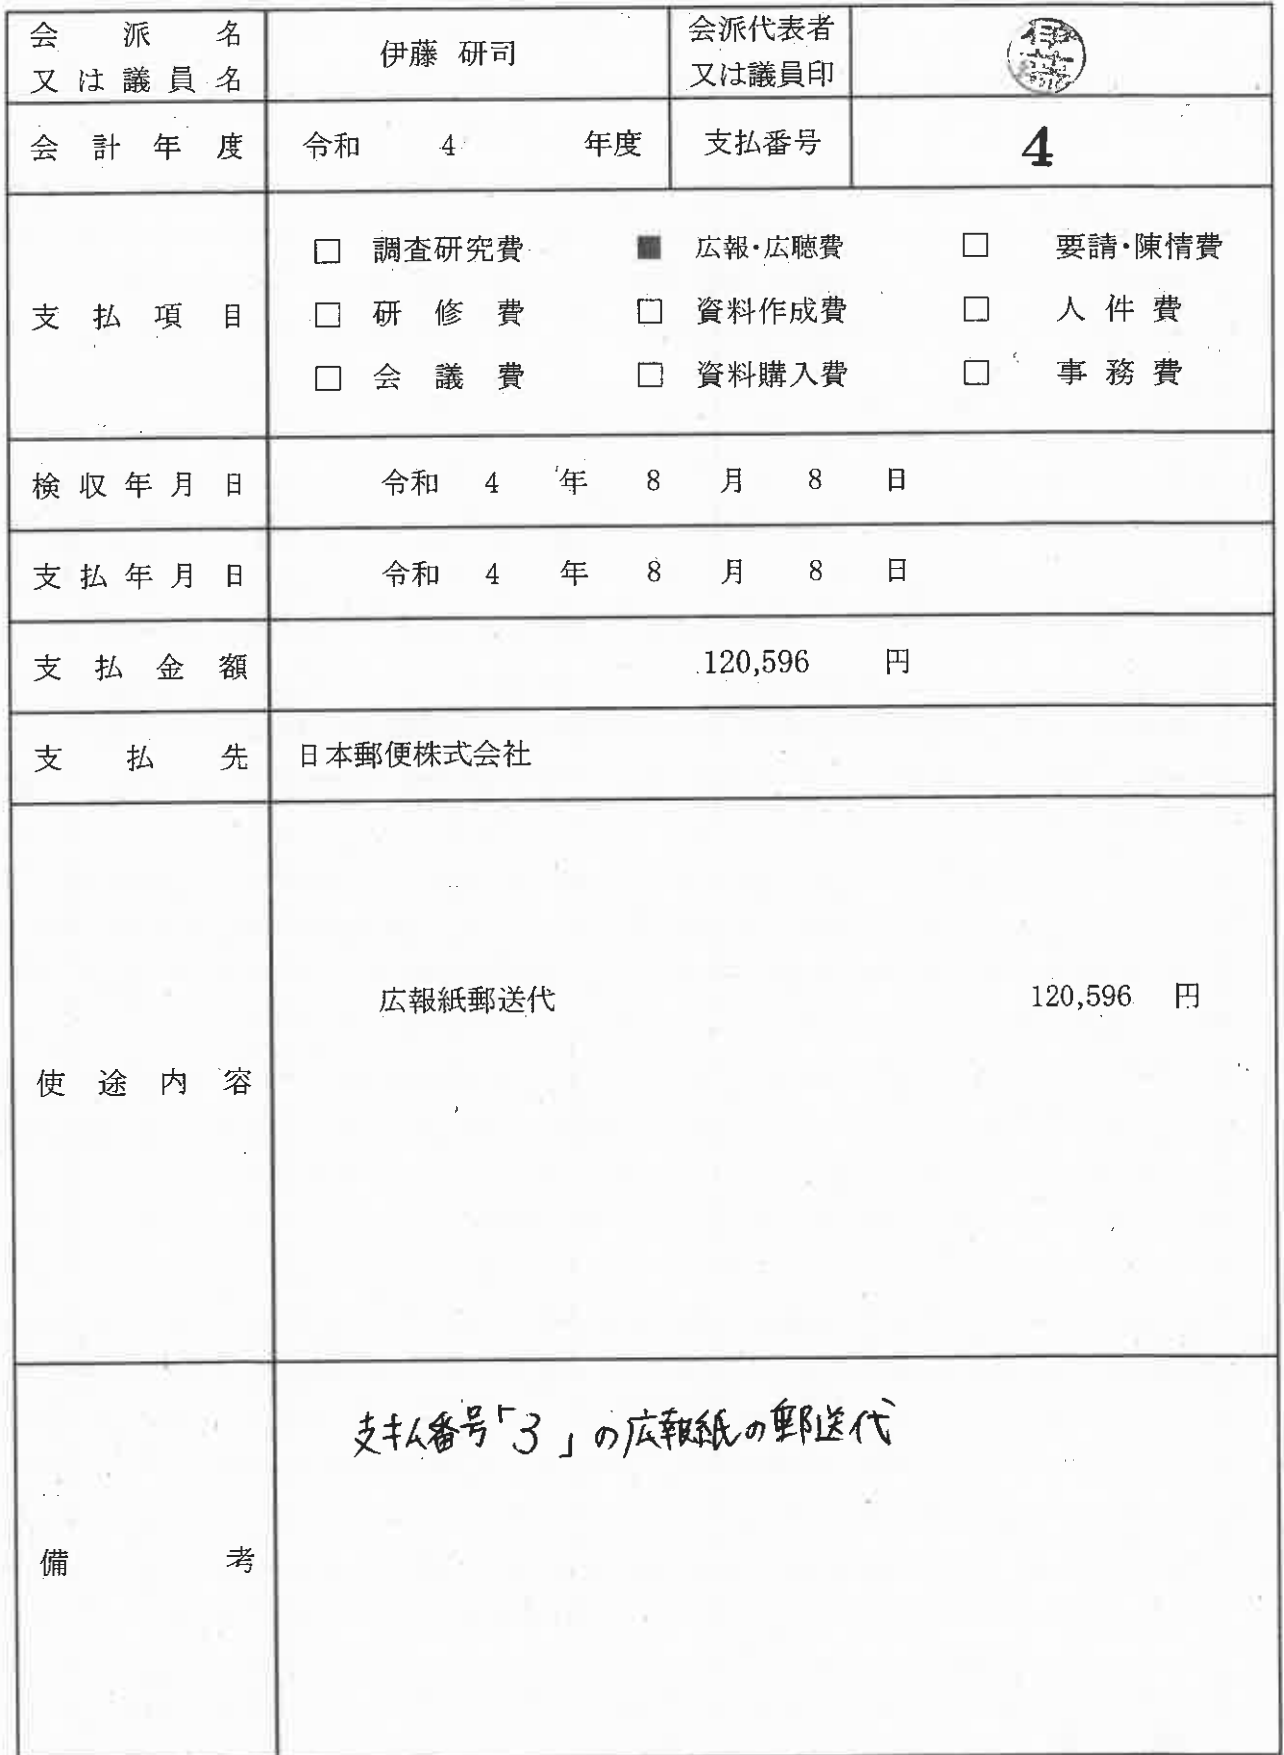 会派名
又は議員名
伊藤 研司
会派代表者
又は議員印
会計年度 令和 4 年度 支払番号 4
支払項目
□ 調査研究費 ■ 広報・広聴費 □ 要請・陳情費
□ 研修費 □ 資料作成費 □ 人件費
□ 会議費 □ 資料購入費 □ 事務費
検収年月日 令和 4 年 8 月 8 日
支払年月日 令和 4 年 8 月 8 日
支払金額 120,596 円
支払先 日本郵便株式会社
使途内容
広報紙郵送代 120,596 円
備考
支払番号「3」の広報紙の郵送代